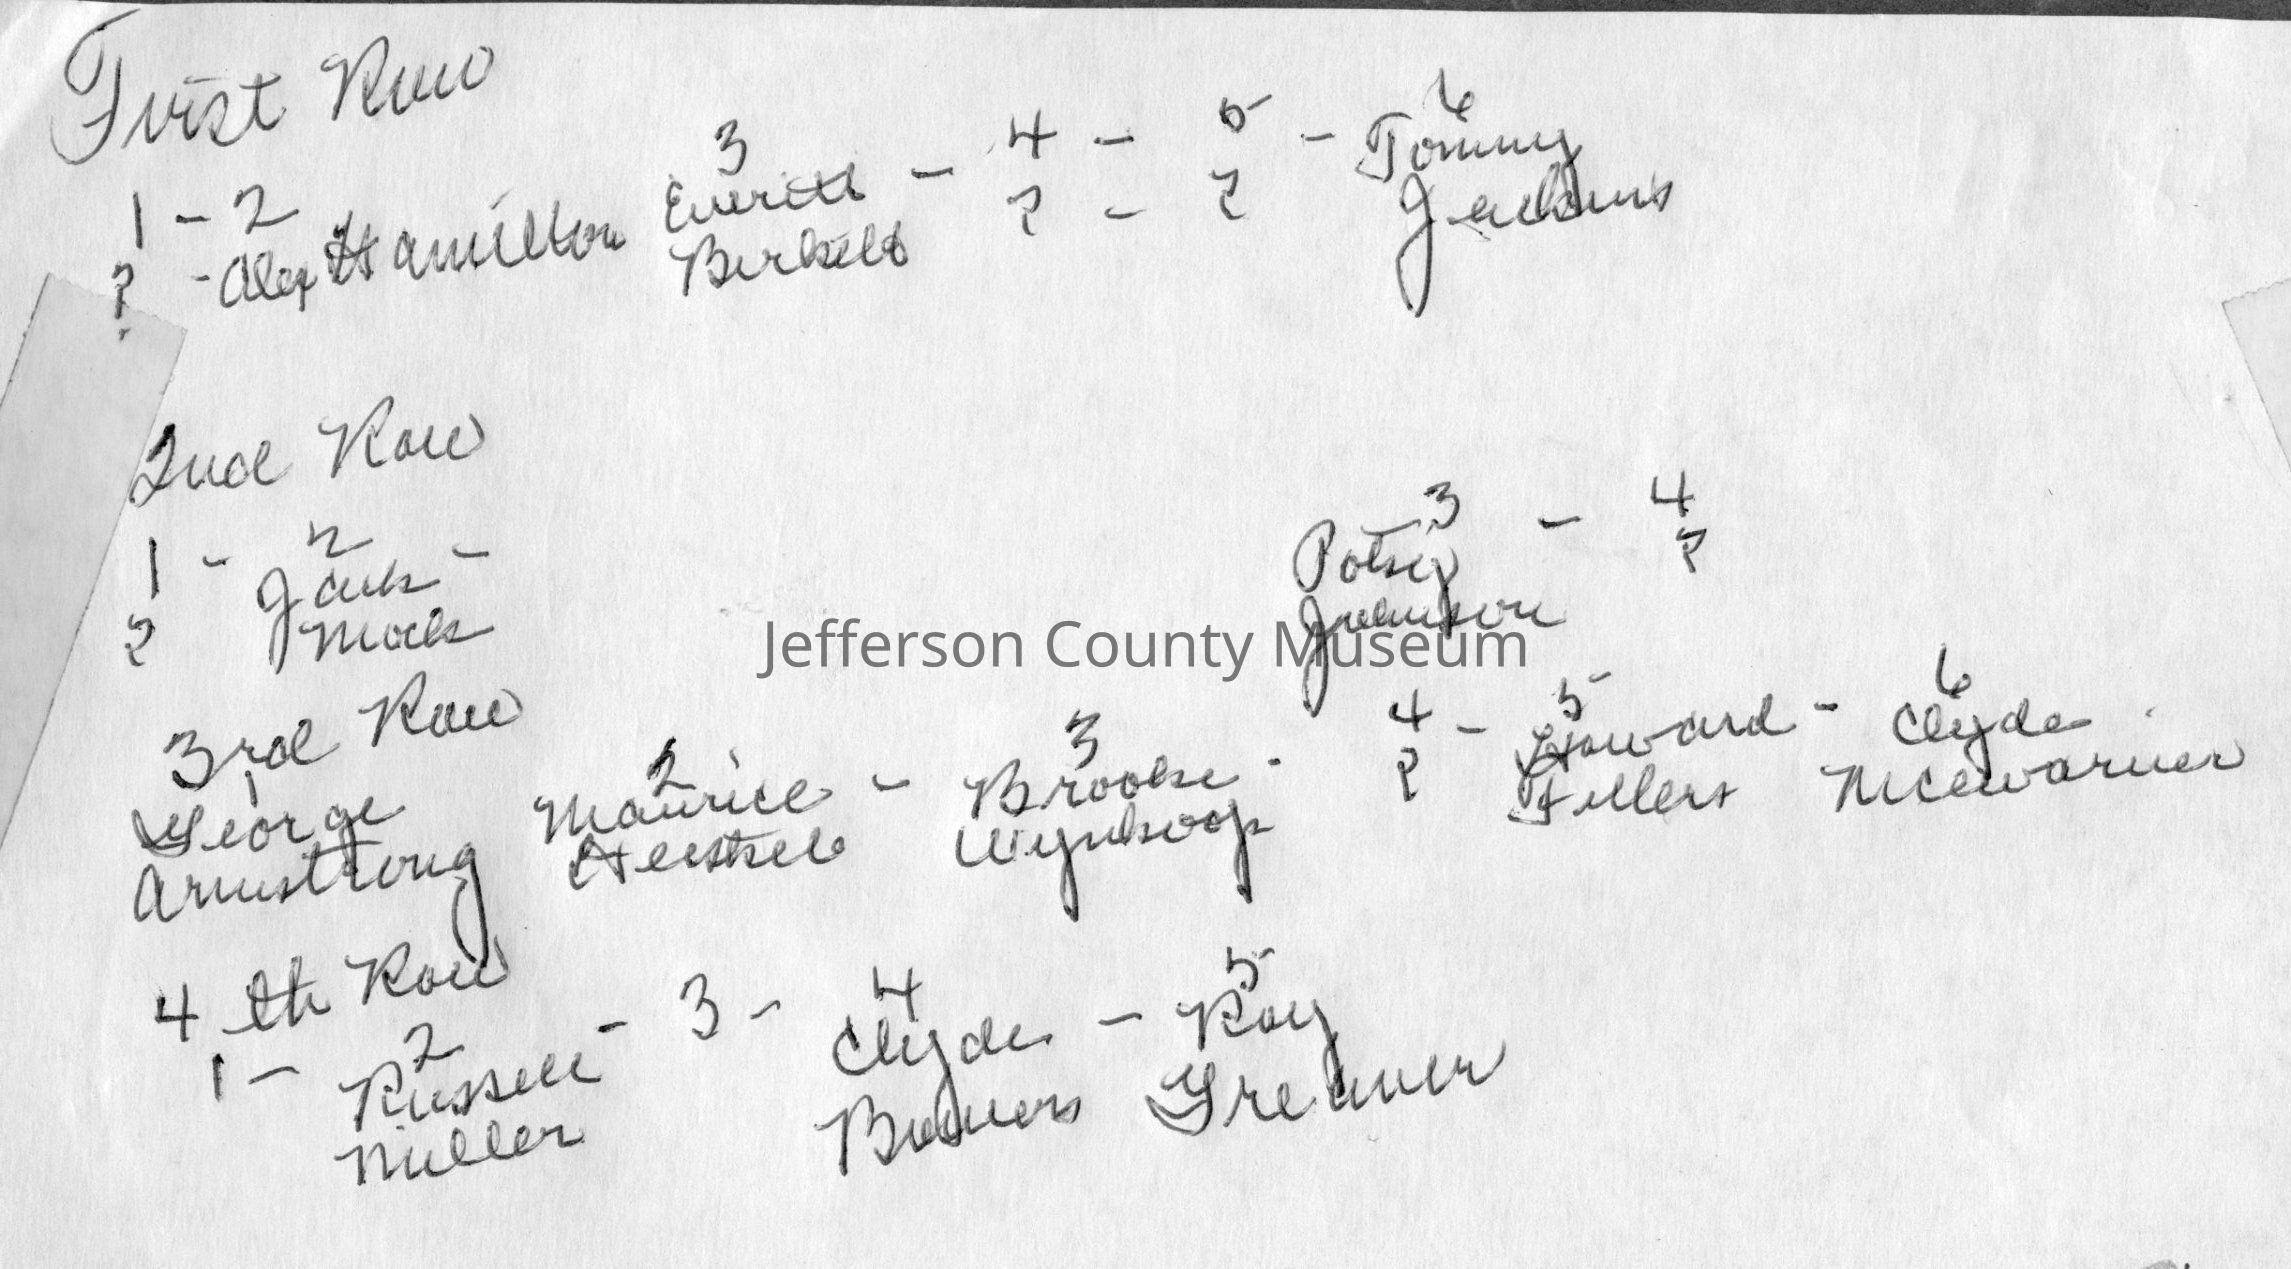 First Row
3 - 4 - 5 - 6
1 - 2 Everitt Tommy
? - Alex Hamilton ? - ? Jenkins
2nd Row
3 - 4
1 - 2 - Potsy ?
? Jack Johnson
Mock
Jefferson County Museum
3rd Row
1 2 3 4 - 5 - 6
George Maurice - Brooke - ? Howard - Clyde
Armstrong Wynkoop Fellers McEwarner
4th Row
1 - 2 - 3 - 4 - 5
Russell Clyde Roy
Miller Bowers Greaver